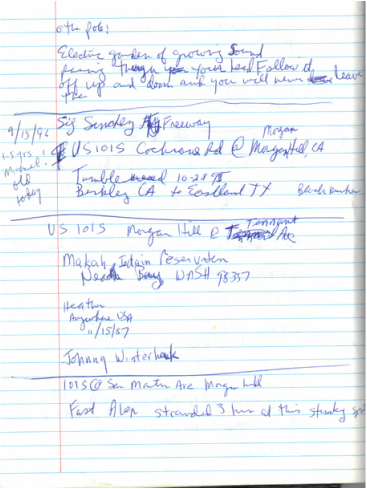 Electric garden of growing Sound
your head Follow it
off up and down and you will never Leave
the
9/15/96
Sig Smokey Freeway
1.5 yrs
Michael
old
today
US 101 S Cochrane Rd @ Morgan Hill, CA
Morgan
Tumble weed 10-28-95
Berkley CA to Eastland TX
US 101 S Morgan Hill @ Tennant Ave
Makah Indain Reservation
Neah Bay WASH 98357
Heather
Anywhere USA
11/15/57
Johnny Winterhawk
101 S @ San Martin Ave Morgan hill
Fast Alen stranded 3 hrs at this stinky